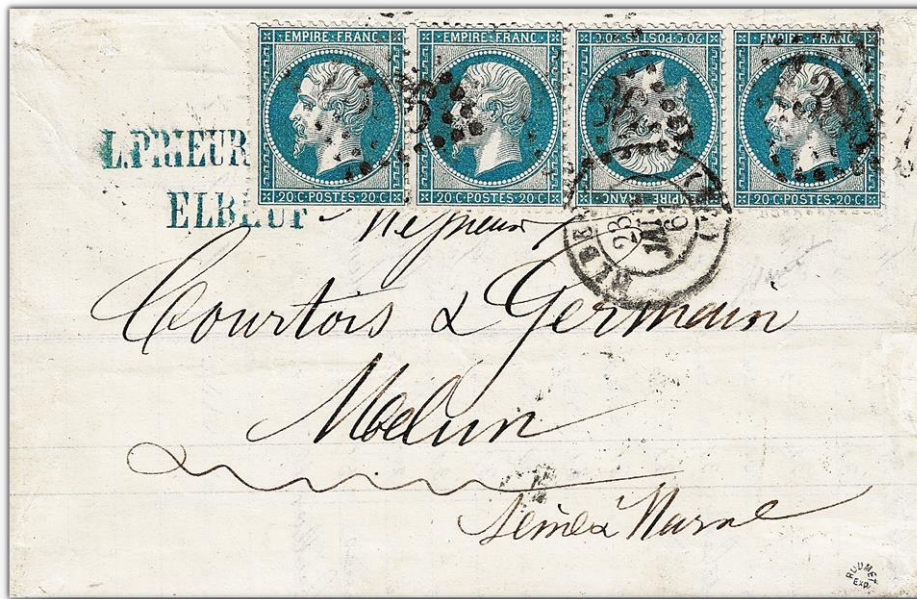 EMPIRE FRANC EMPIRE FRANC 20.C·POSTES·20.C EMPIRE FRANC
20.C·POSTES·20.C 20.C·POSTES·20.C EMPIRE FRANC 20.C·POSTES·20.C
L.PRIEUR
ELBEUF
23
Messieurs
Courtois & Germain
Melun
Seine & Marne
ROUMET
EXP.